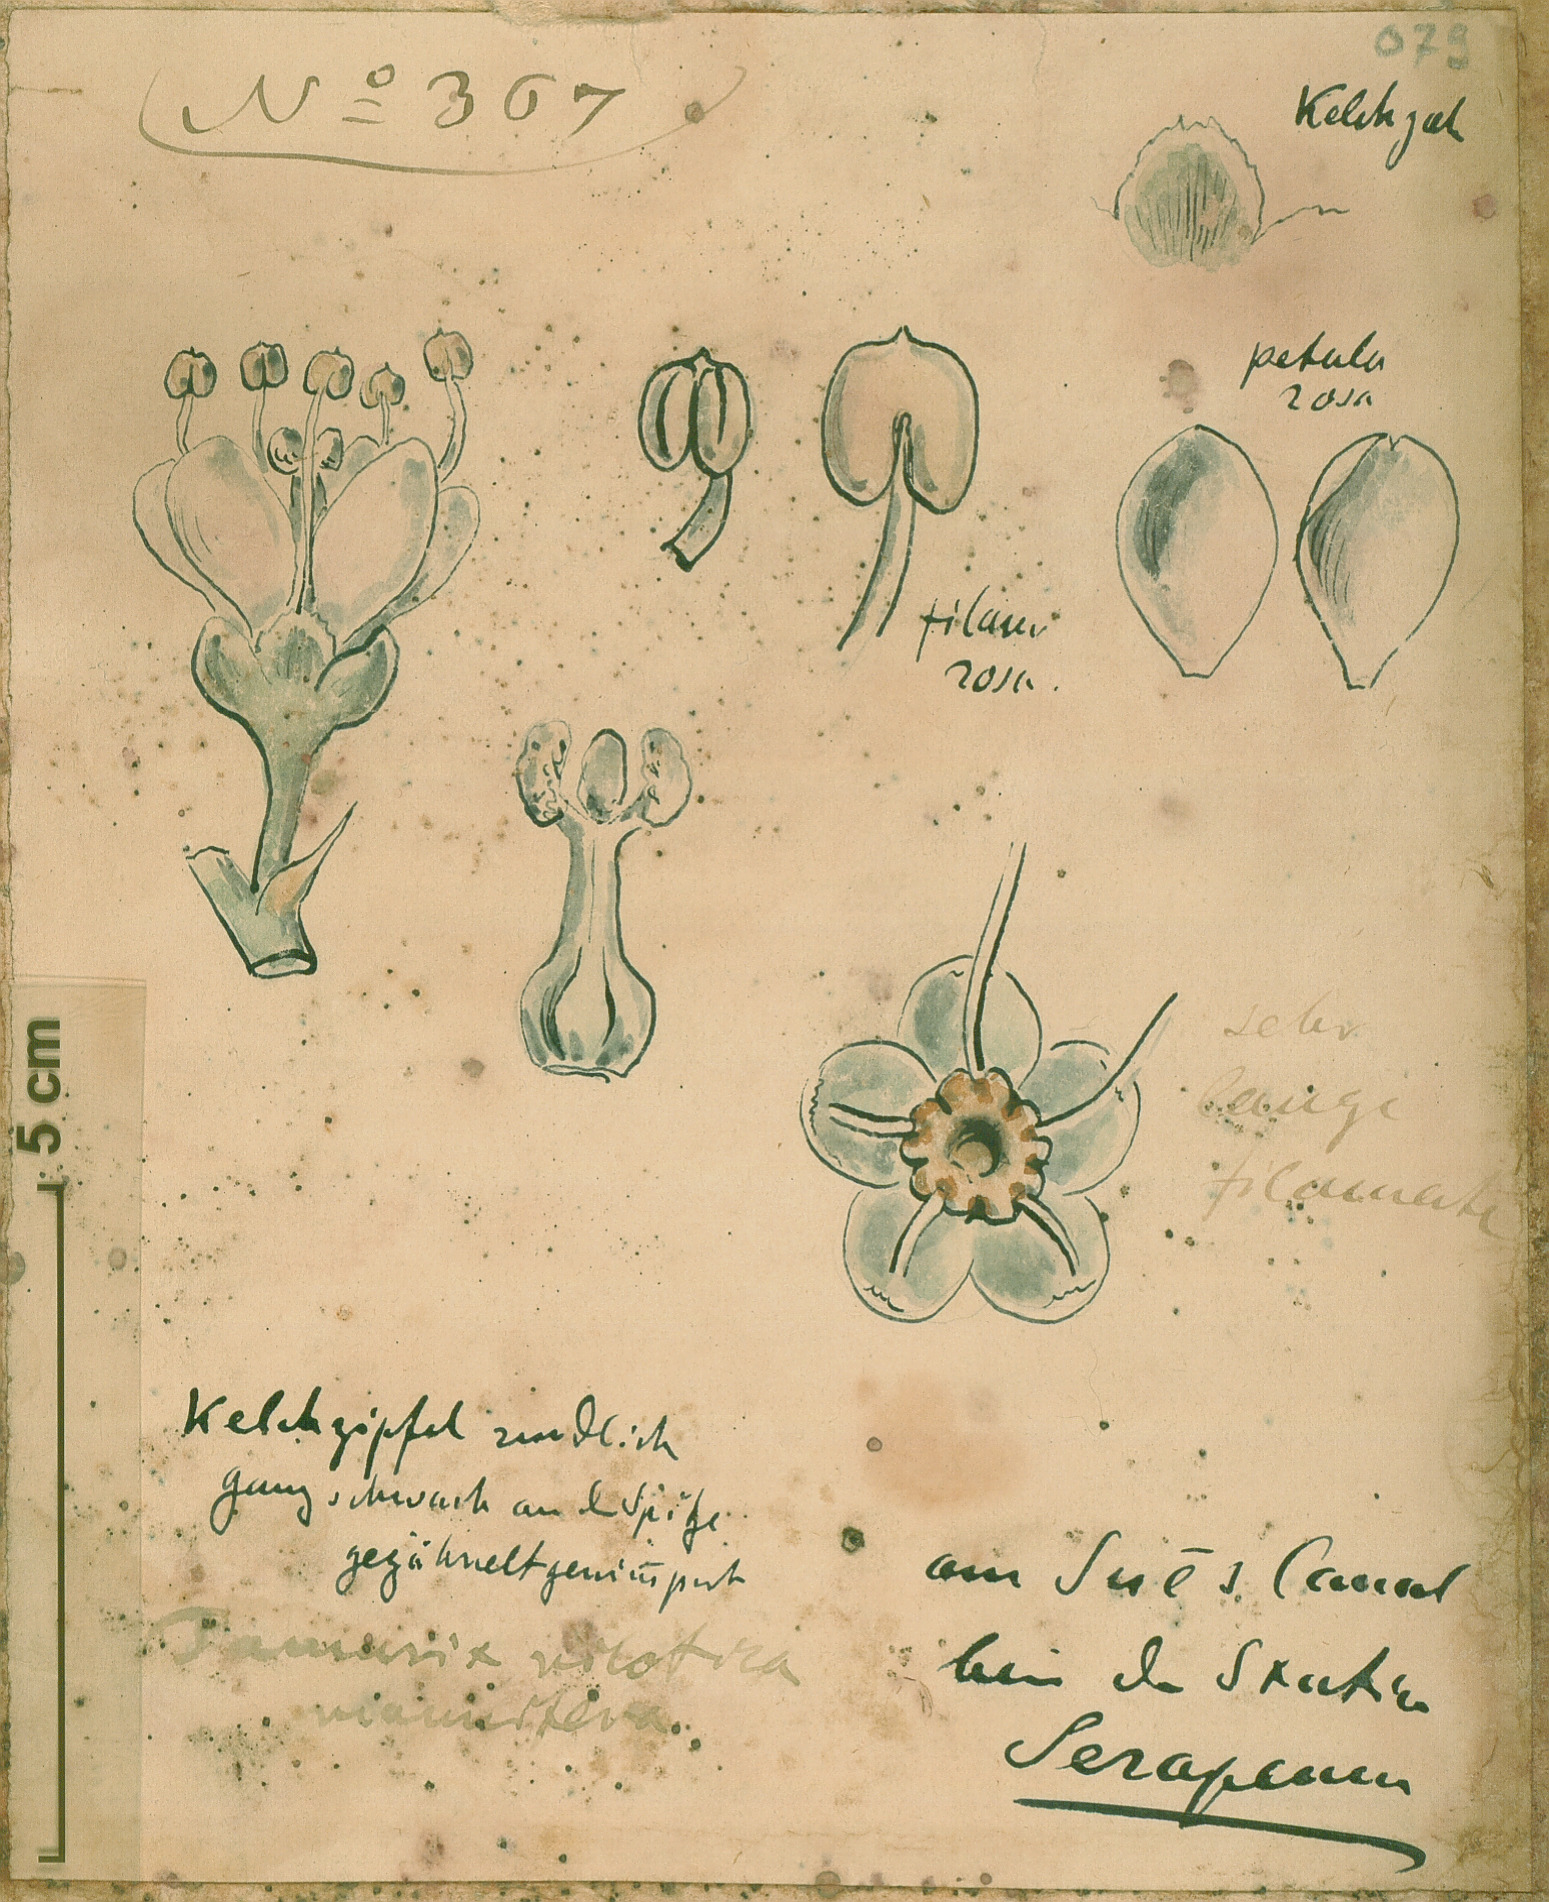 079
No 367
Kelchzah
petala
rosa
filam
rosa.
5 cm
sehr
lange
filamente
Kelchzipfel rundlich
ganz schwach an d Spitze
gezähnelt gewimpert
Tamarix nilotica
am Suēs Canal
bei d Station
Serapeum